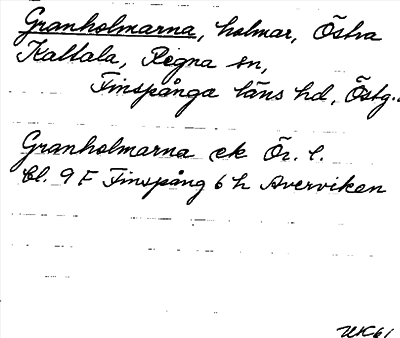 Granholmarna, holmar, Östra
Kaltala, Regna sn,
Finspånga läns hd, Östg.
Granholmarna ek Ör. l.
bl. 9 F Finspång 6 h Averviken
WK61